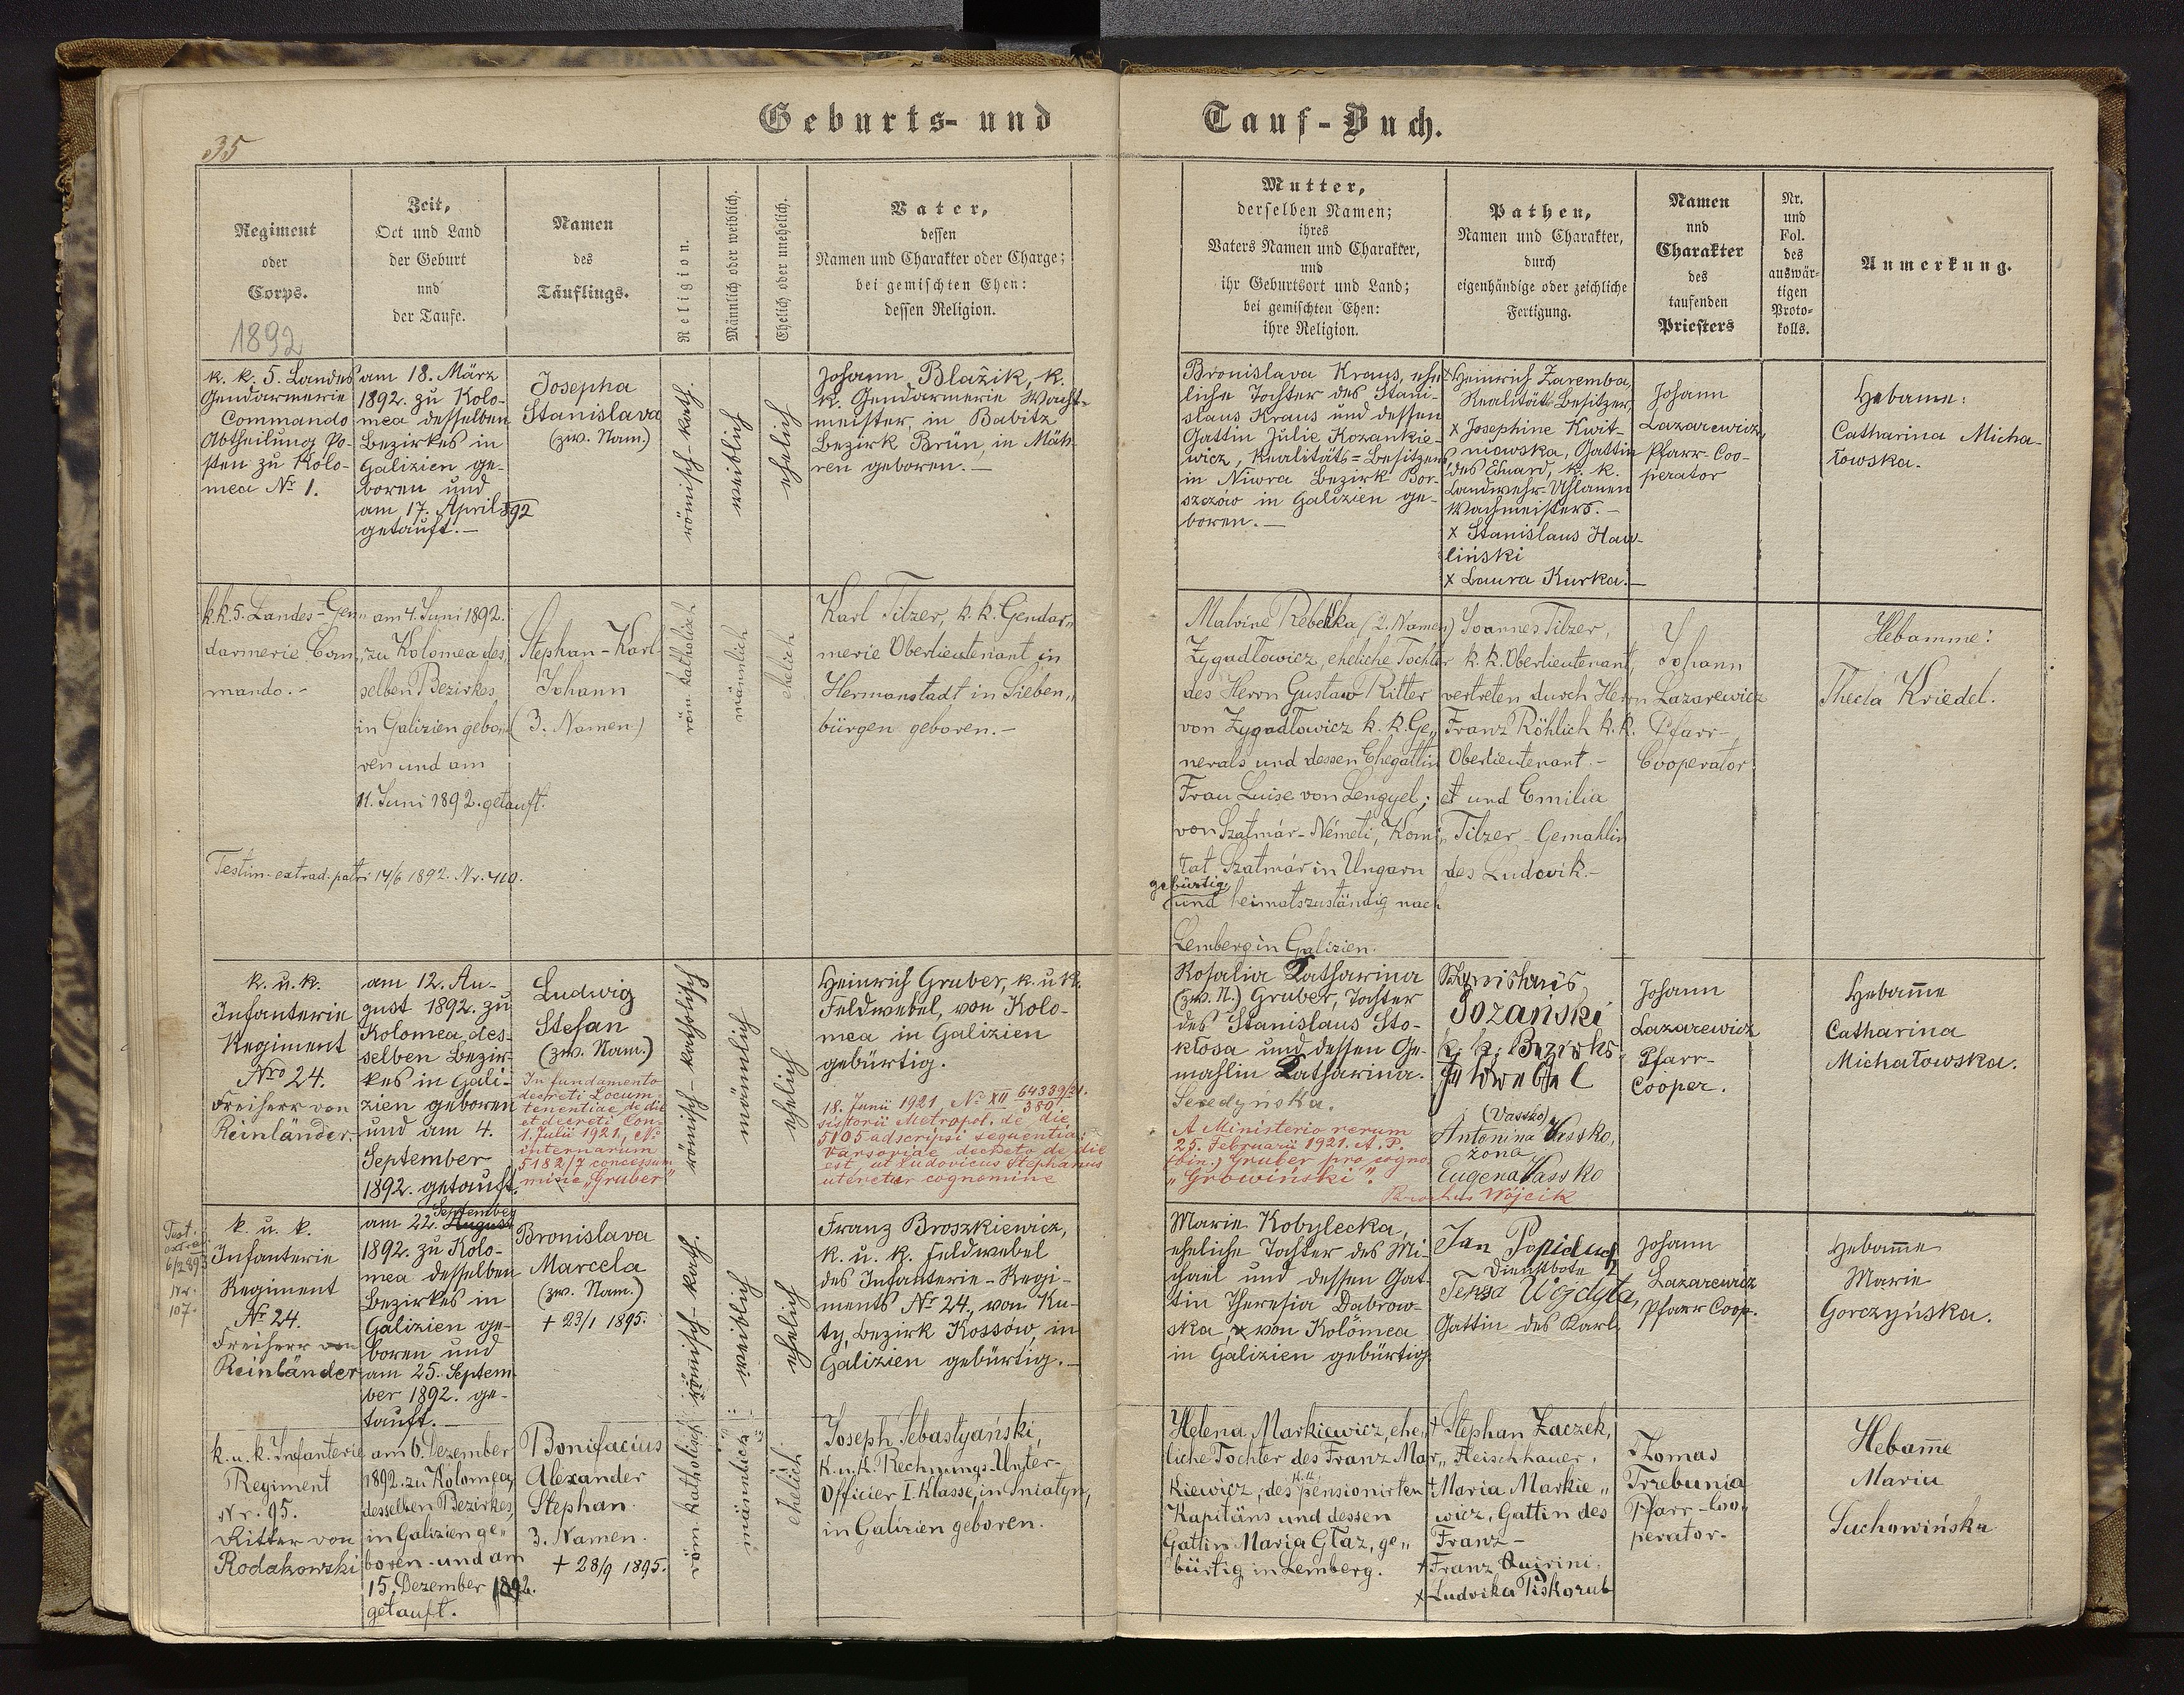 Geburts- und Tauf-Buch.
35
Regiment
oder
Corps.
1892
Zeit,
Ort und Land
der Geburt
und
der Taufe.
Namen
des
Täuflings.
Religion.
Männlich oder weiblich.
Ehelich oder unehelich.
Vater,
dessen
Namen und Charakter oder Charge;
bei gemischten Ehen:
dessen Religion.
Mutter,
derselben Namen;
ihres
Vaters Namen und Charakter,
und
ihr Geburtsort und Land;
bei gemischten Ehen:
ihre Religion.
Pathen,
Namen und Charakter,
durch
eigenhändige oder zeichliche
Fertigung.
Namen
und
Charakter
des
taufenden
Priesters
Nr.
und
Fol.
des
auswär-
tigen
Proto-
kolls.
Anmerkung.
k. k. 5. Landes
Gendarmerie
Commando
Abtheilung Po-
sten zu Kolo-
mea No 1.
am 18. März
1892. zu Kolo-
mea desselben
Bezirkes in
Galizien ge-
boren und
am 17. April 892
getauft.—
Josepha
Stanislava
(zw. Nam.)
römisch-kath.
weiblich
ehelich
Johann Blažik, k.
k. Gendarmerie Wacht-
meister, in Babitz
Bezirk Brün, in Mäh-
ren geboren.—
Bronislava Kraus, ehe-
liche Tochter des Stani-
slaus Kraus und dessen
Gattin Julie Kozankie-
wicz, Realitäts=Besitzers
in Niwra Bezirk Bor-
szczów in Galizien ge-
boren.—
x Heinrich Zaremba,
Realitäts Besitzer,
x Josephine Kwit-
niowska, Gattin
des Eduard, k. k.
Landwehr-Uhlanen
Wachmeisters.—
x Stanislaus Haw-
liński
x Laura Kurka.—
Johann
Lazarewicz,
Pfarr-Coo-
perator
Hebame:
Catharina Micha-
łowska.
k.k. 5. Landes-Gen„
darmerie Com„
mando.-
am 4. Juni 1892.
zu Kolomea des„
selben Bezirkes
in Galizien gebo„
ren und am
11. Juni 1892. getauft.
Stephan-Karl-
Johann
(3. Namen)
röm. katholisch
männlich
ehelich
Karl Tilzer, k.k. Gendar„
merie Oberlieutenant in
Hermanstadt in Sieben„
bürgen geboren.—
Malvine Rebekka (2. Namen)
Zygadłowicz, eheliche Tochter
des Herrn Gustav Ritter
von Zygadłowicz k.k. Ge„
nerals und dessen Ehegattin
Frau Luise von Lengyel;
von Szatmár-Németi, Komi„
tat Szatmár in Ungarn
gebürtig,
und heimatszuständig nach
Lemberg in Galizien.
Joannes Tilzer,
k.k. Oberlieutenant,
vertreten durch Herrn
Franz Röhlich k.k.
Oberlieutenant.-
et und Emilia
Tilzer-Gemahlin
des Ludovik.-
Johann
Lazarewicz
Pfarr-
Cooperator
Hebamme:
Thecla Kriedel.
Testim. extrad. patri 14/6 1892. Nr. 410.
k. u. k.
Infanterie
Regiment
Nro 24.
Freiherr von
Reinländer.
am 12. Au-
gust 1892. zu
Kolomea, des-
selben Bezir-
kes in Gali-
zien geboren
und am 4.
September
1892. getauft.
Ludwig
Stefan
(zw. Nam.)
In fundamento
decreti Locum-
tenentiae, de die
et decreti Con-
1. Julii 1921, No
internarum
5182/7 concessum
mine „Gruber"
römisch-katholisch
männlich
ehelich
Heinrich Gruber, k. u. k.
Feldwebel, von Kolo-
mea in Galizien
gebürtig.
18. Junii 1921 No XII 64389/21.
380
sistorii Metropol. de die
5105 adscripsi sequentia:
Varsoviae decreto de die
est, ut Ludovicus Stephanus
uteretur cognomine
Rosalia Katharina
(zw. N.) Gruber, Tochter
des Stanislaus Sto-
kłosa und dessen Ge-
mahlin Katharina
Seredyńska.
A Ministerio rerum
25. Februarii 1921. A. P.
(bin.) Gruber pro cogno-
„Growiński".
Sozański
k. k. Bezirks-
(Vassko)
Antonina Vassko,
żona
Eugena Vassko
Wójcik
Johann
Lazarewicz
Pfarr-
Cooper.
Hebam̄e
Catharina
Michałowska.
Test.
extrad.
6/2 893
Nr.
107.
k. u. k.
Infanterie
Regiment
No 24.
Freiherr von
Reinländer
am 22. August September
1892. zu Kolo-
mea desselben
Bezirkes in
Galizien ge-
boren und
am 25. Septem-
ber 1892. ge-
tauft.—
Bronislava
Marcela
(zw. Nam.)
+ 23/1 1895.
römisch-kath.
weiblich
ehelich
Franz Broszkiewicz,
k. u. k. Feldwebel
des Infanterie-Regi-
ments No 24., von Ku-
ty, Bezirk Kossów, in
Galizien gebürtig.—
Marie Kobylecka,
eheliche Tochter des Mi-
chael und dessen Gat-
tin Theresia Dąbrow-
ska, x von Kolomea
in Galizien gebürtig.
Jan Popiduch
Dienstbote
Wojdyta,
Gattin des Karl
Johann
Lazarewicz
Pfarr Coop.
Hebam̄e
Marie
Gorczyńska.
k. u. k. Infanterie
Regiment
Nr. 95.
Ritter von
Rodakowski
am 6. Dezember
1892. zu Kolomea,
desselben Bezirkes,
in Galizien ge„
boren und am
15. Dezember 1892.
getauft.
Bonifacius
Alexander
Stephan.
3. Namen.
+ 28/9 1895.
röm. katholisch
männlich
ehelich
Joseph Sebastyański,
k. u. k. Rechnungs-Unter-
Officier I. Klasse, in Sniatyn,
in Galizien geboren.
Helena Markiewicz, ehe„
liche Tochter des Franz Mar„
kiewicz, des k.k. pensionirten
Kapitäns und dessen
Gattin Maria Głaz, ge„
bürtig in Lemberg.
+ Stephan Zaczek,
Fleischhauer.
+ Maria Markie„
wicz, Gattin des
Franz-
+ Franz Quirini.
x Ludvika Piskozub
Thomas
Trzebunia
Pfarr-Coo„
perator-
Hebam̄e
Maria
Suchowińska